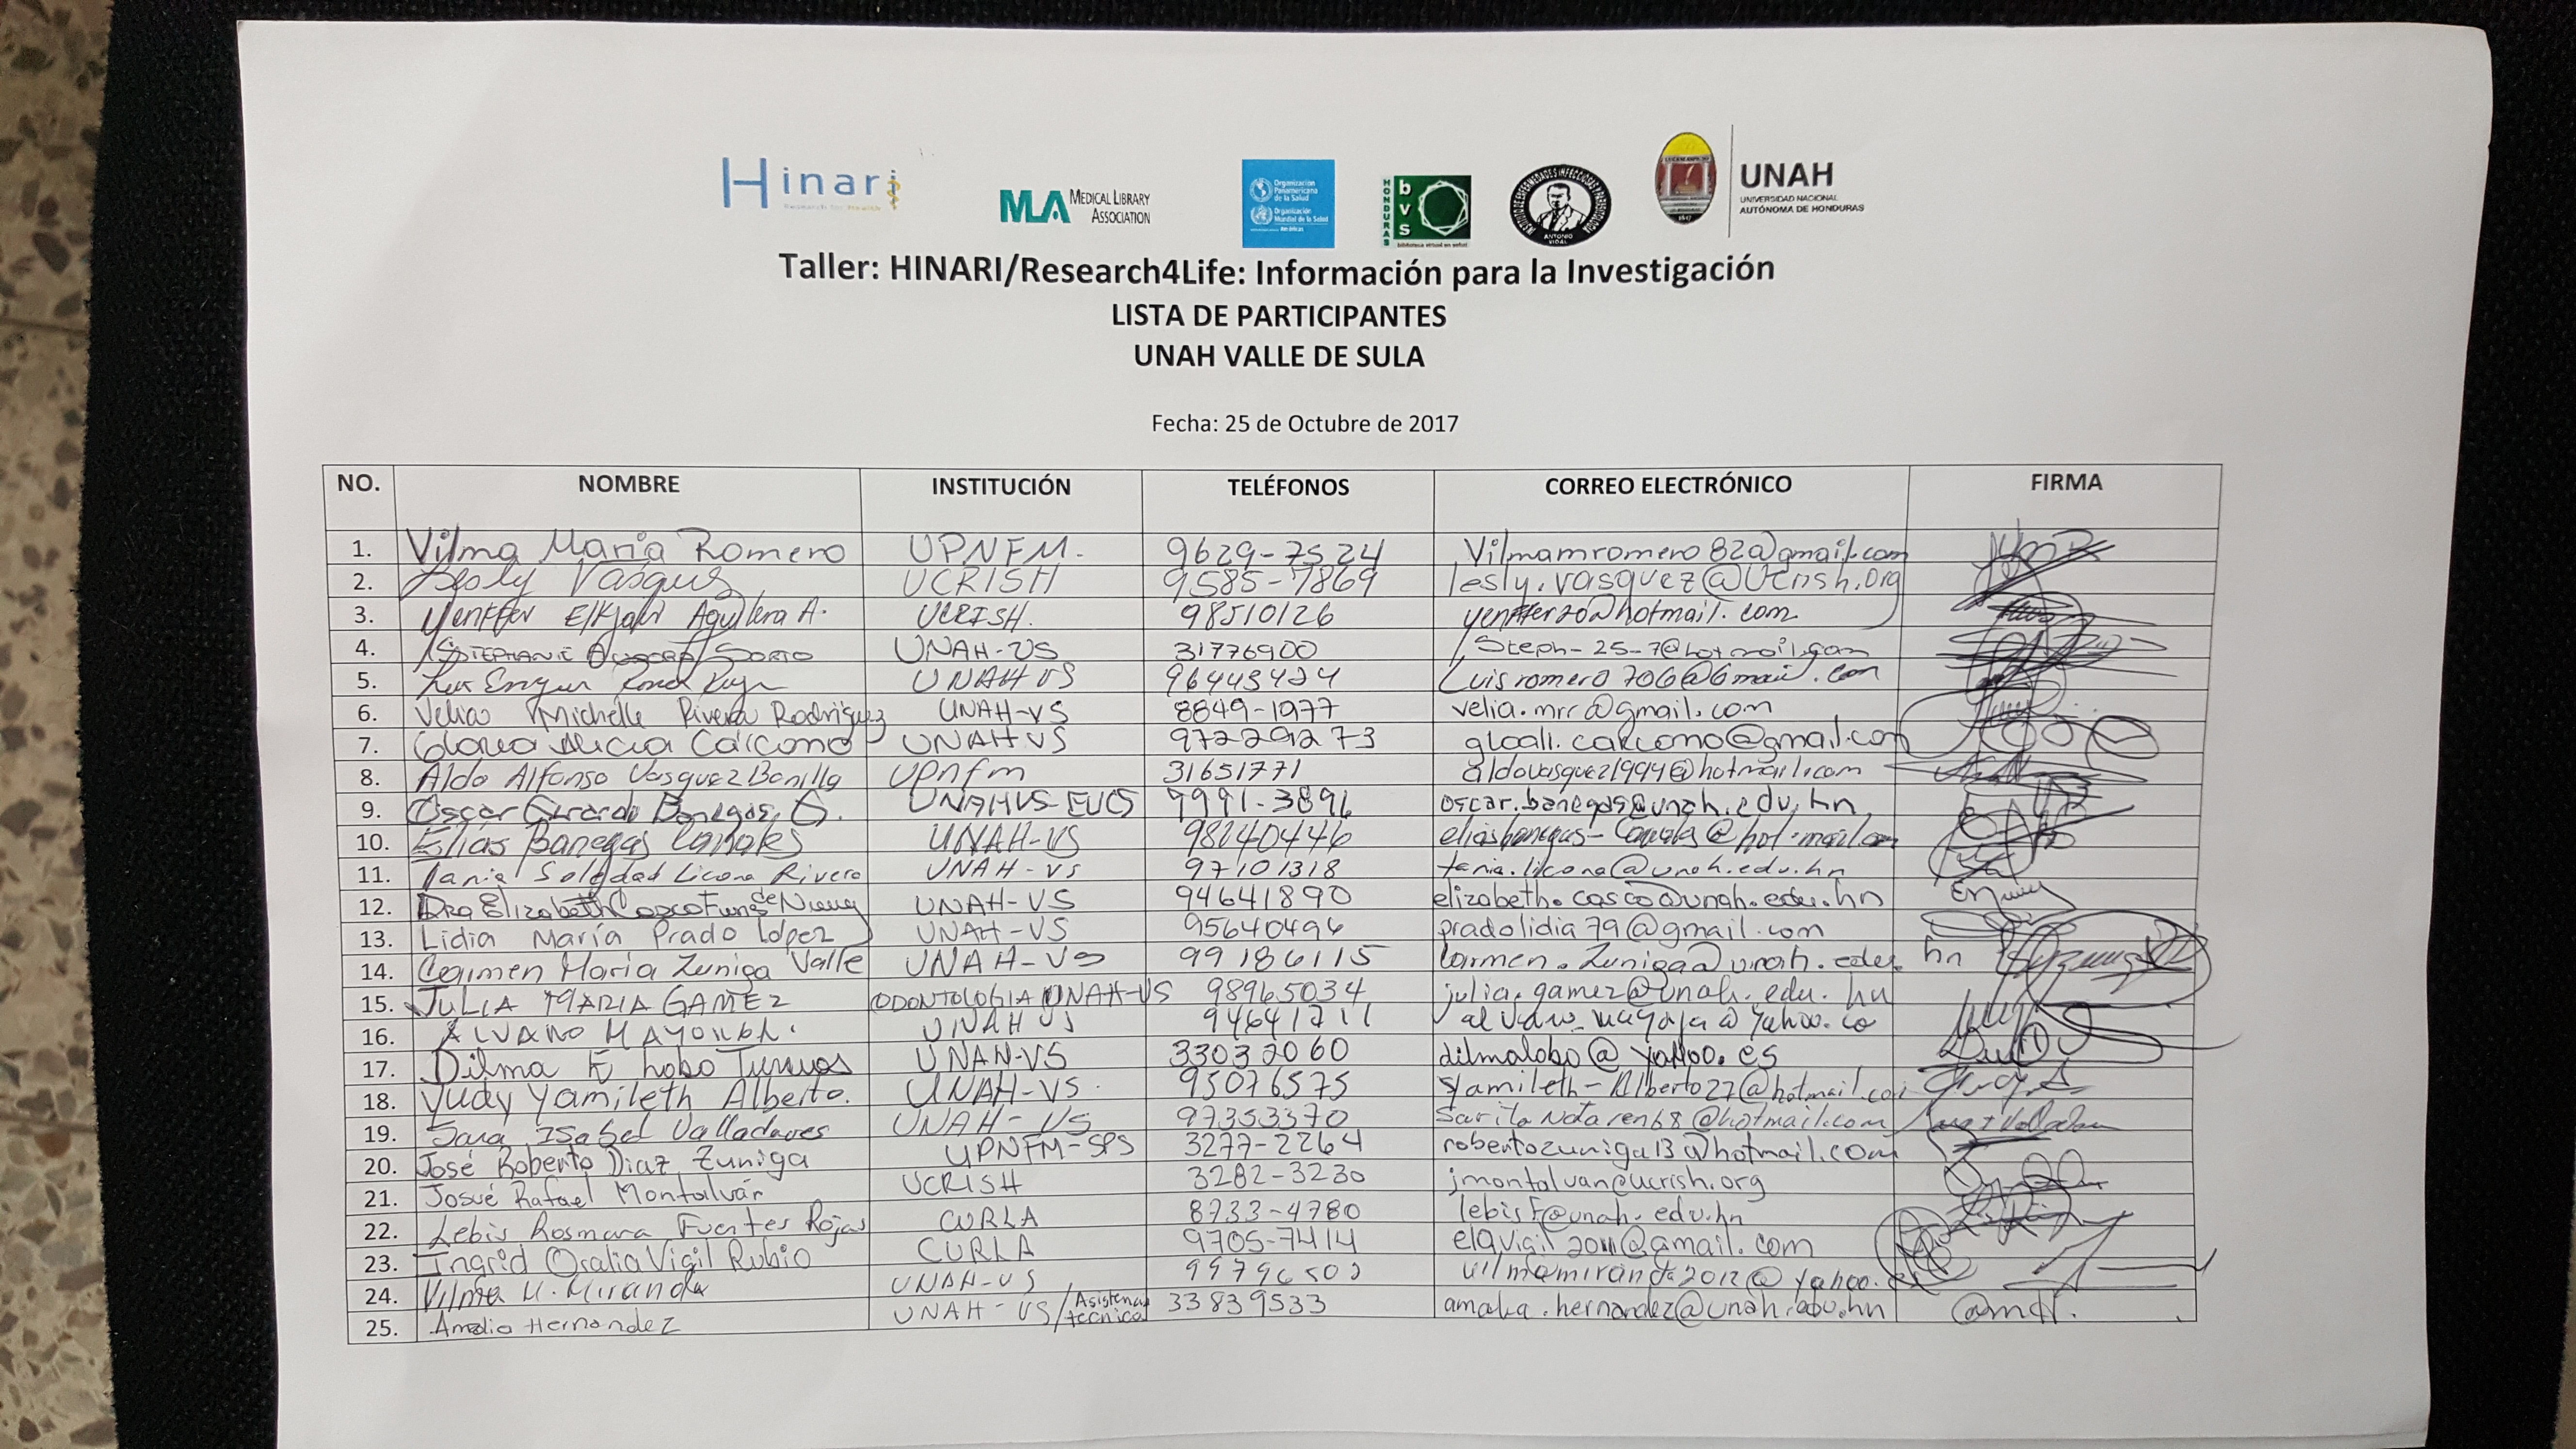 Hinari
Research for Health
MLA MEDICAL LIBRARY ASSOCIATION
Organización Panamericana de la Salud
Organización Mundial de la Salud
Américas
HONDURAS bvs
biblioteca virtual en salud
ANTONIO VIDAL
UNAH
UNIVERSIDAD NACIONAL
AUTÓNOMA DE HONDURAS
Taller: HINARI/Research4Life: Información para la Investigación
LISTA DE PARTICIPANTES
UNAH VALLE DE SULA
Fecha: 25 de Octubre de 2017
NO. NOMBRE INSTITUCIÓN TELÉFONOS CORREO ELECTRÓNICO FIRMA
1. Vilma María Romero UPNFM. 9629-7524 Vilmamromero82@gmail.com
2. Lesly Vasquez UCRISH 9585-7869 lesly.vasquez@Ucrish.org
3. Aguilera A. UCRISH. 98510126
4. STEPHANIE SORTO UNAH-VS 31776900 Steph-25-7@hotmail.com
5. UNAH VS 96443424 Luisromero706@Gmail.com
6. Velia Michelle Rivera Rodriguez UNAH-VS 8849-1977 velia.mrr@gmail.com
7. Gloria Alicia Cárcamo UNAH VS 97229273 gloali.carcamo@gmail.com
8. Aldo Alfonso Vasquez Bonilla upnfm 31651771 aldovasquez1994@hotmail.com
9. Oscar Gerardo Banegas G. UNAHVS-EUCS 9991-3896 oscar.banegas@unah.edu.hn
10. Elías Banegas Canales UNAH-VS 98240446
11. Tania Soledad Licona Rivera UNAH-VS 97101318 tania.licona@unah.edu.hn
12. Dra Elizabeth Casco Funes de UNAH-VS 94641890 elizabeth.casco@unah.edu.hn
13. Lidia María Prado López UNAH-VS 95640496 pradolidia79@gmail.com
14. Carmen María Zuniga Valle UNAH-VS 99186115 Carmen.Zuniga@unah.edu.hn
15. JULIA MARIA GAMEZ ODONTOLOGIA UNAH-VS 98965034 julia.gamez@unah.edu.hn
16. ALVARO UNAH VS
17. Dilma E Lobo UNAH-VS 33032060 dilmalobo@yahoo.es
18. Yudy Yamileth Alberto. UNAH-VS. 95076575 yamileth-Alberto27@hotmail.com
19. Sara Isabel Valladares UNAH-VS 97353370
20. José Roberto Diaz Zuniga UPNFM-SPS 3277-2264 robertozuniga13@hotmail.com
21. Josué Rafael Montalván UCRISH 3282-3230 jmontalvan@ucrish.org
22. Lebis Rosmara Fuentes Rojas CURLA 8733-4780 lebisf@unah.edu.hn
23. Ingrid Oralia Vigil Rubio CURLA 9705-7414
24. Vilma M. Miranda UNAH-VS 99796502 vilmamiranda2012@yahoo.es
25. Amalia Hernandez UNAH-VS/Asistencia técnica 33839533 amalia.hernandez@unah.edu.hn